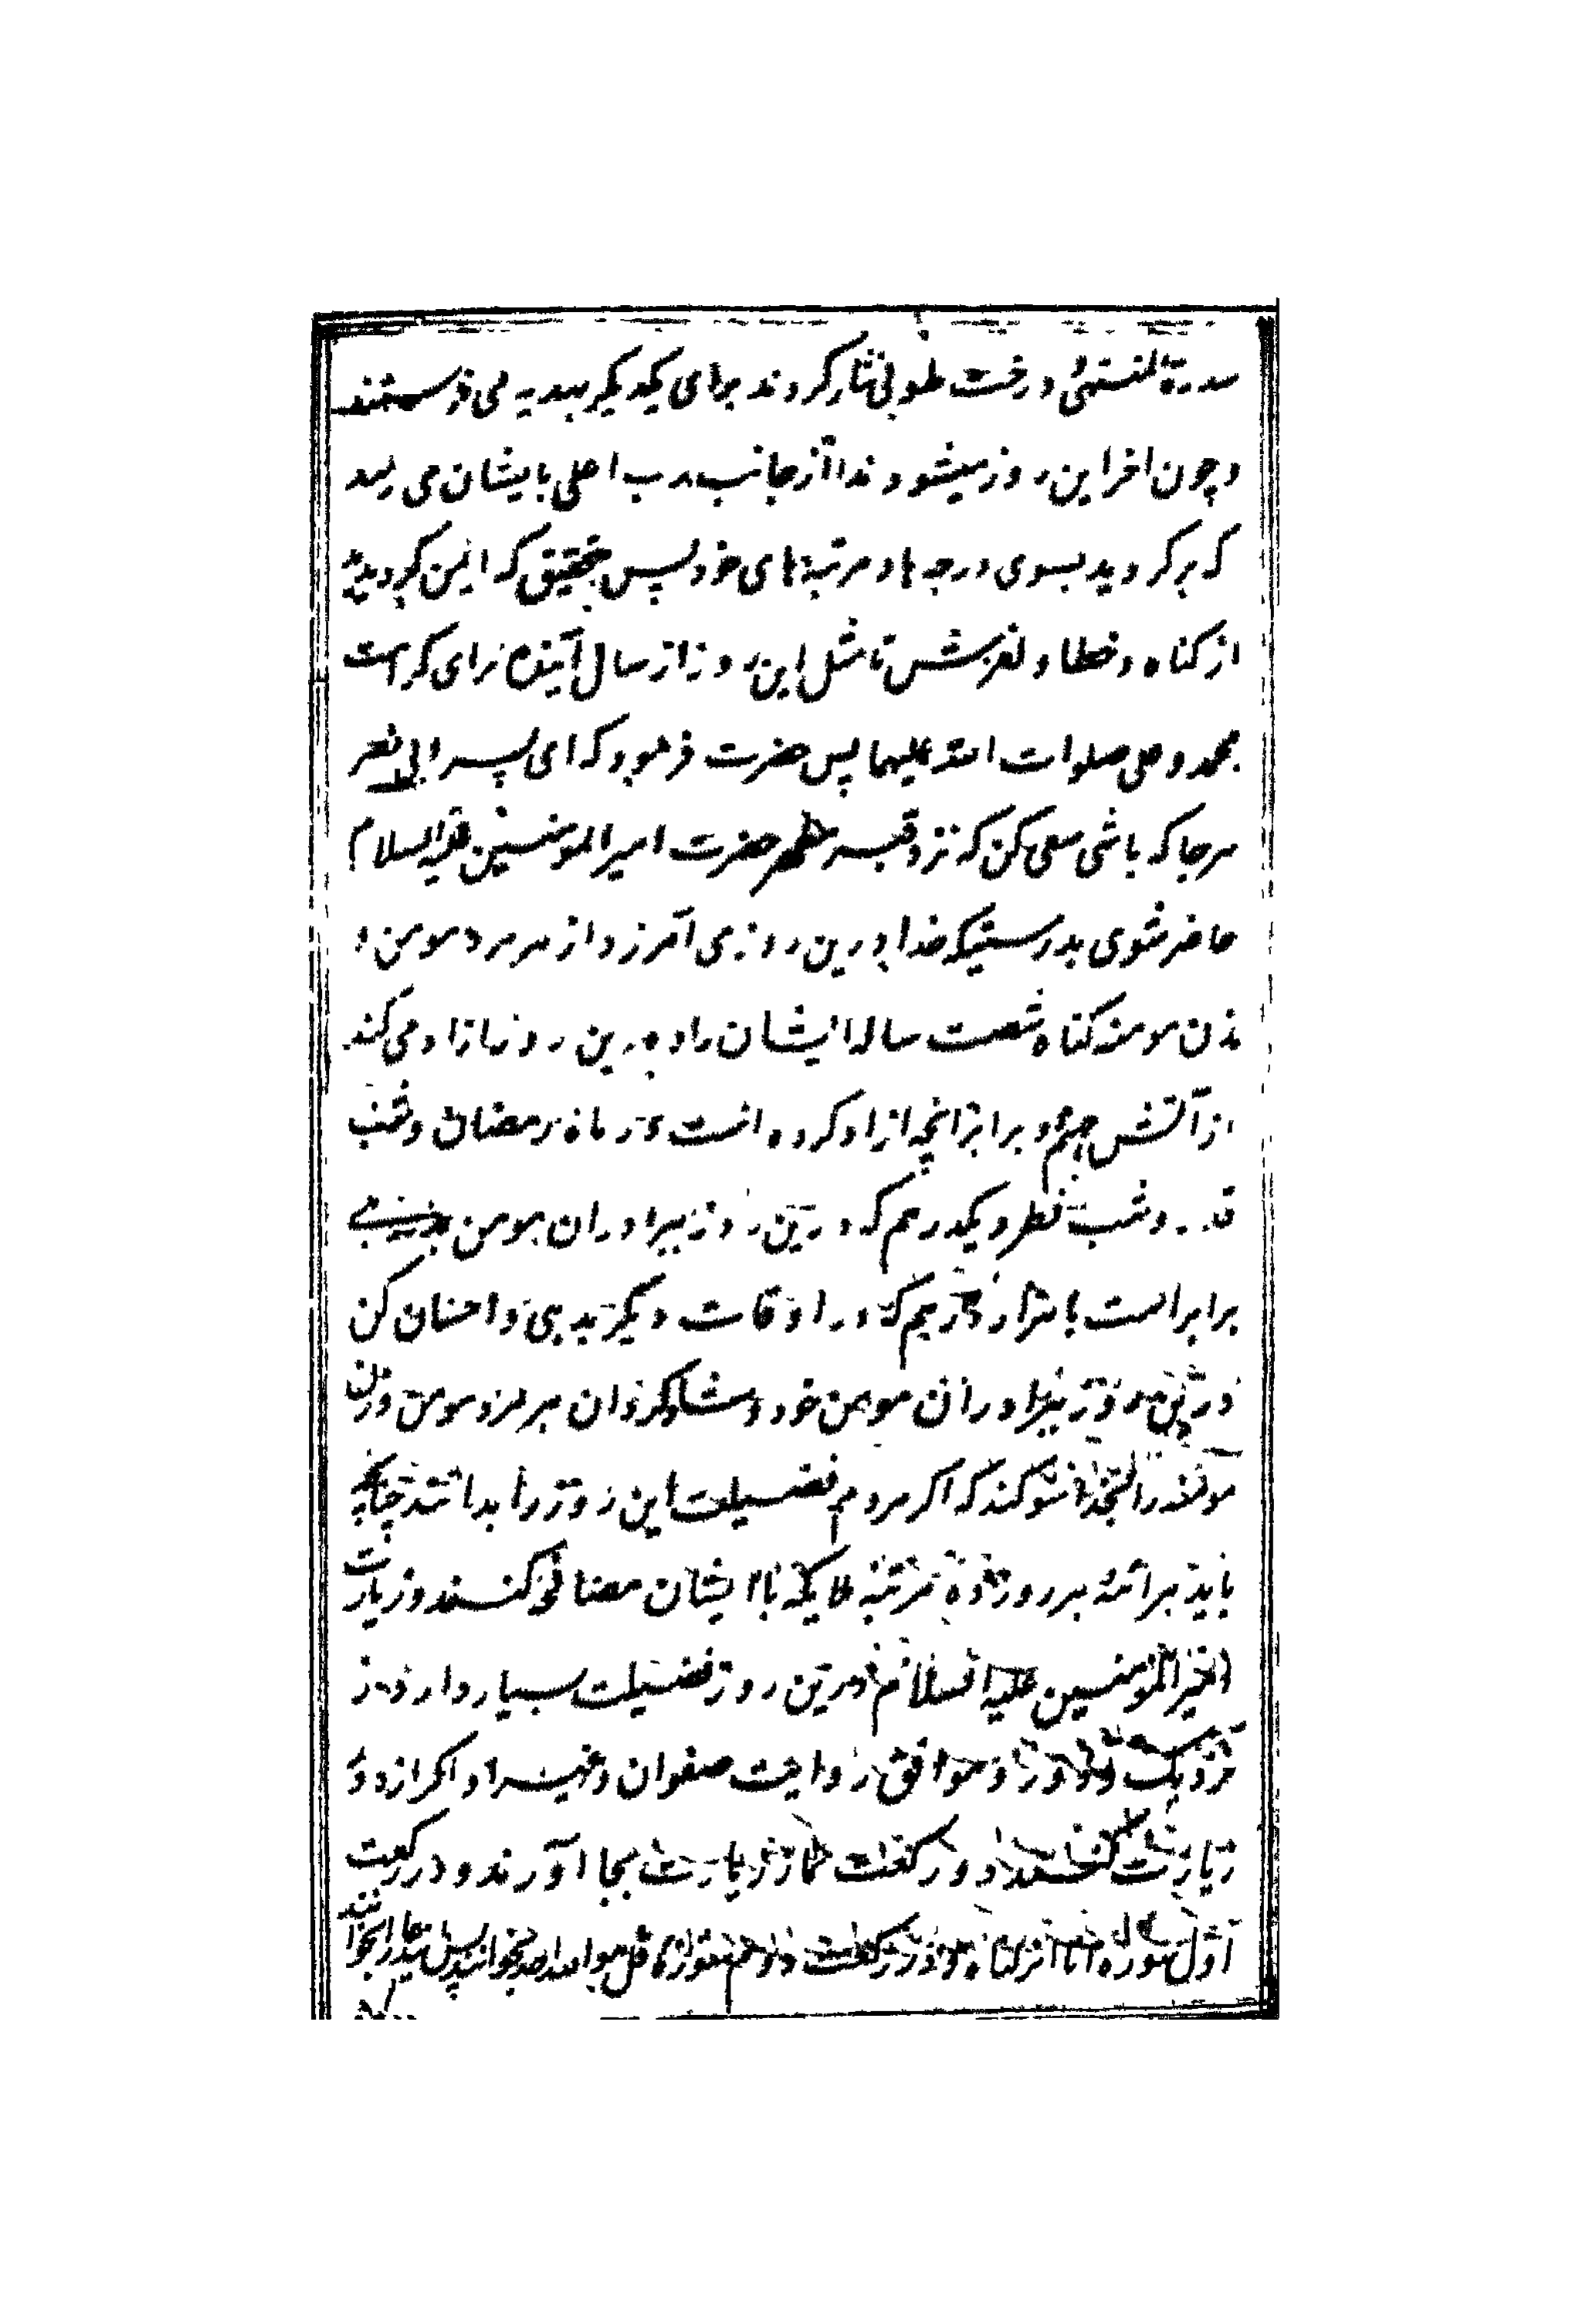 سدرة المنتهی و درخت طوبی نثار کردند برای یکدیگر بهدیه می فرستند
و چون اخر این روز میشود ندا از جانب رب اعلی بایشان می رسد
که برگردید بسوی درجه ها و مرتبهای خود پس بتحقیق که ایمن گردیدید
از گناه و خطا و لغزش تا مثل این روز از سال آینده برای کرامت
محمد و علی صلوات الله علیهما پس حضرت فرمود که ای پسر ابی نصر
هرجا که باشی سعی کن که نزد قبر مطهر حضرت امیر المومنین علیه السلام
حاضر شوی بدرستیکه خدا درین روز می آمرزد از هر مرد مومن و
زن مومنه گناه شصت ساله ایشان را و درین روز ازاد می کند
از آتش جهنم دو برابر انچه ازاد کرده است در ماه رمضان و شب
قدر و شب فطر و یکدرهم که درین روز ببرادران مومن بدهند
برابر است با هزار درهم که در اوقات دیگر بدهی و احسان کن
درین روز ببرادران مومن خود و شاد گردان هر مرد مومن و زن
مومنه را بخدا سوگند که اگر مردم فضیلت این روز را بدانند چنانچه
باید هر ائنه هر روز ده مرتبه ملایکه با ایشان مصافحه کنند و زیارت
امیر المومنین علیه السلام درین روز فضیلت بسیار دارد از
نزدیک و دور و موافق روایت صفوان و غیره او اگر از دور
زیارت کنند دو رکعت نماز زیارت بجا آورند و در رکعت
اول سوره انا انزلناه و در رکعت دوم سوره قل هو الله احد بخوانند پس